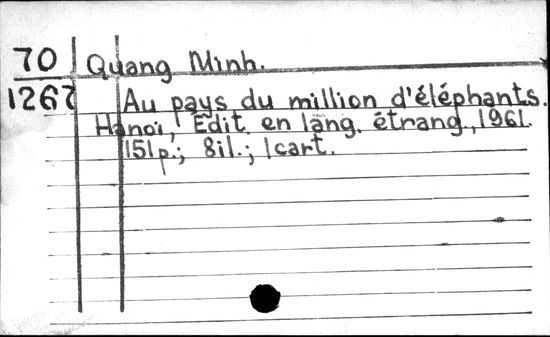 70
1267
Quang Minh.
Au pays du million d'éléphants.
Hanoi, Edit. en lang. étrang., 1961.
151p.; 8il.; 1cart.